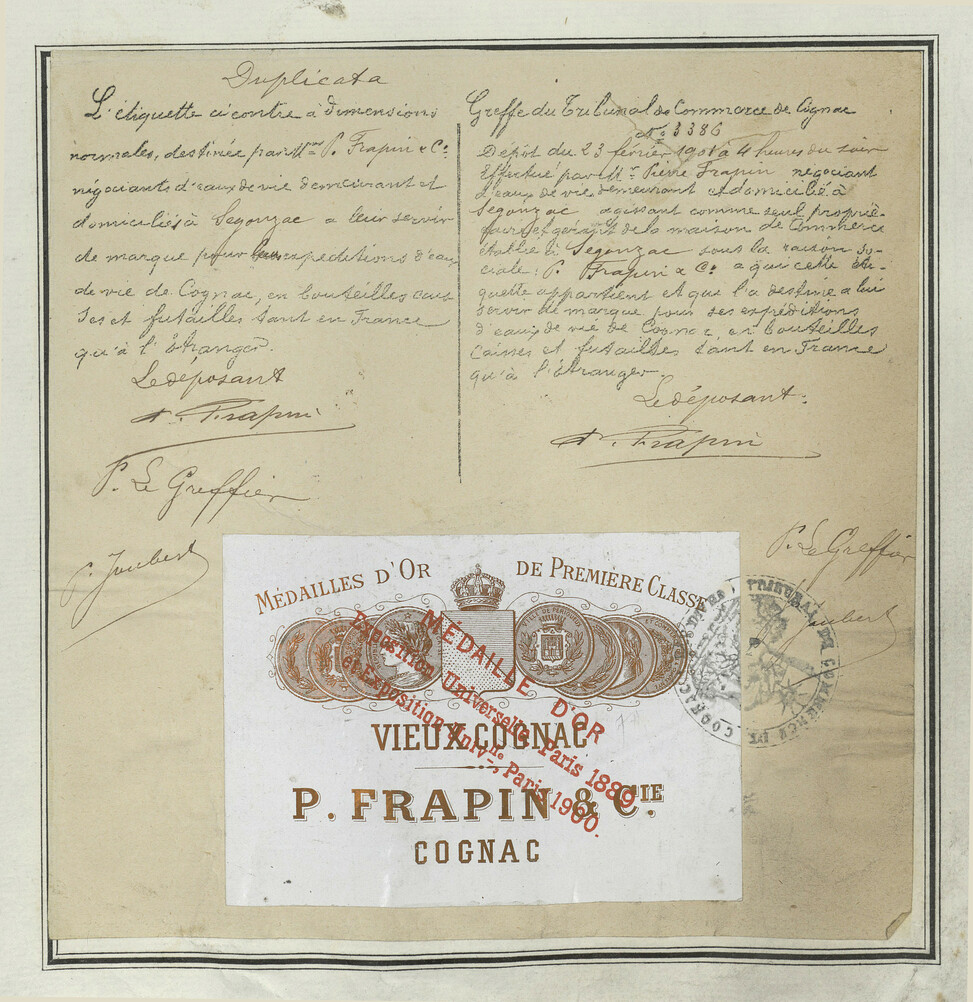 Duplicata
L'étiquette ci contre à dimensions
normales, destinée par Mrs P. Frapin & Cie
négociants d'eaux de vie demeurant et
domiciliés à Segonzac a leur servir
de marque pour leurs expeditions d'eaux
de vie de Cognac, en bouteilles cais
ses et futailles tant en France
qu'à l'étranger.
Le déposant
P. Frapin
P. Le Greffier
Joubert
Greffe du Tribunal de Commerce de Cognac
No 3386
Dépôt du 23 février 1901 à 4 heures du soir
Effectué par Mr Pierre Frapin négociant
d'eaux de vie demeurant et domicilié à
Segonzac agissant comme seul proprié-
taire et gérant de la maison de Commerce
établie à Segonzac sous la raison so-
ciale: P. Frapin & Cie a qui cette éti-
quette appartient et que l'a destine a lui
servir de marque pour ses expéditions
d'eaux de vie de Cognac en bouteilles
caisses et futailles tant en France
qu'à l'étranger.
Le déposant:
P. Frapin
P. Le Greffier
Joubert
MÉDAILLES D'OR DE PREMIÈRE CLASSE
MÉDAILLE D'OR
Exposition Universelle Paris 1889
et Exposition Univlle, Paris 1900.
VIEUX COGNAC
P. FRAPIN & CIE.
COGNAC
TRIBUNAL DE COMMERCE DE COGNAC